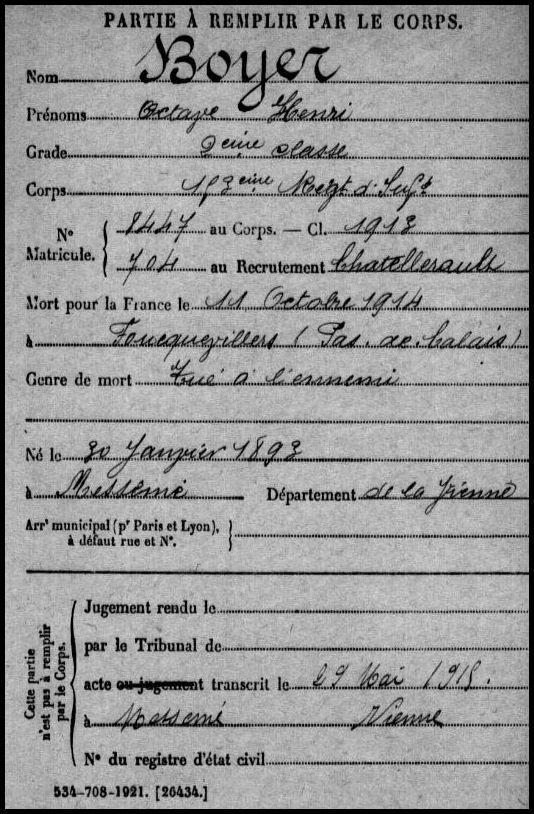 PARTIE À REMPLIR PAR LE CORPS.
Nom Boyer
Prénoms Octave Henri
Grade 2eme classe
Corps Régt d'Inft
N° Matricule. 8447 au Corps. — Cl. 1913
704 au Recrutement Chatellerault
Mort pour la France le 11 Octobre 1914
à Foucquevillers (Pas. de. Calais)
Genre de mort Tué à l'ennemi
Né le 30 Janvier 1893
à Messemé Département de la Vienne
Arrt municipal (pr Paris et Lyon),
à défaut rue et N°.
Cette partie
n'est pas à remplir
par le Corps.
Jugement rendu le
par le Tribunal de
acte ou jugement transcrit le 29 Mai 1915.
à Messemé Vienne
N° du registre d'état civil
534-708-1921. [26434.]